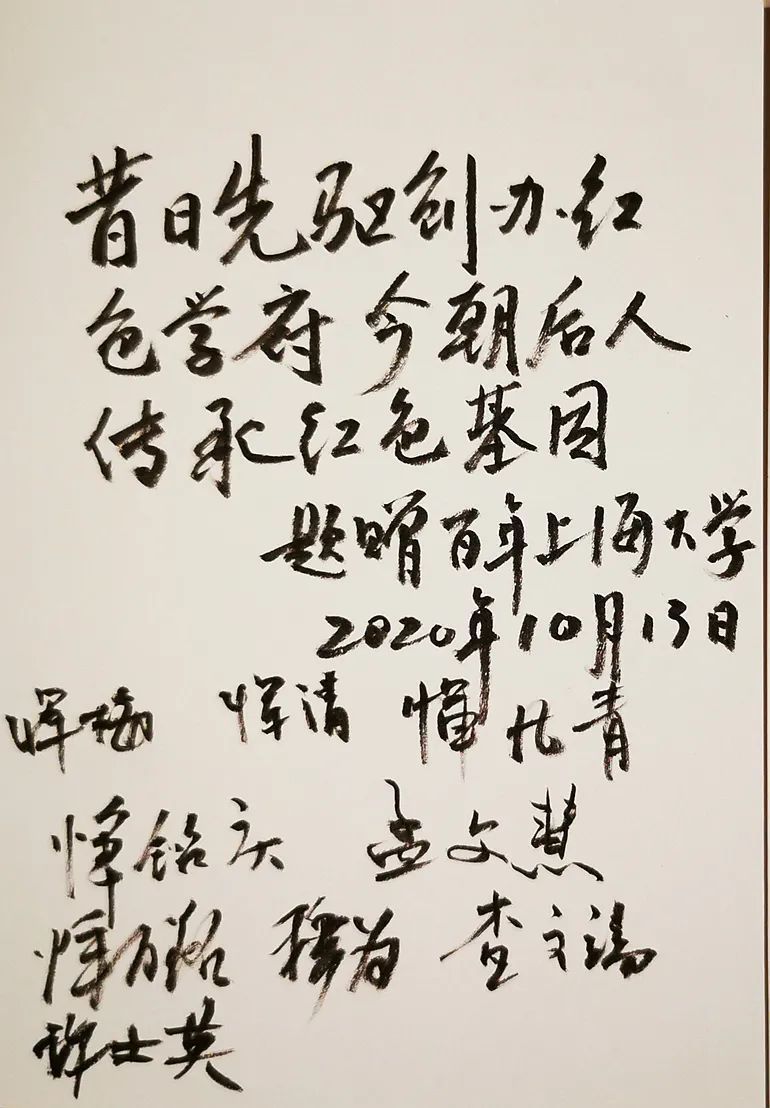 昔日先驱创办红
色学府 今朝后人
传承红色基因
题赠百年上海大学
2020年10月13日
恽梅 恽清 恽青
恽铭庆 孟文慧
恽 穆为 查文
许士英